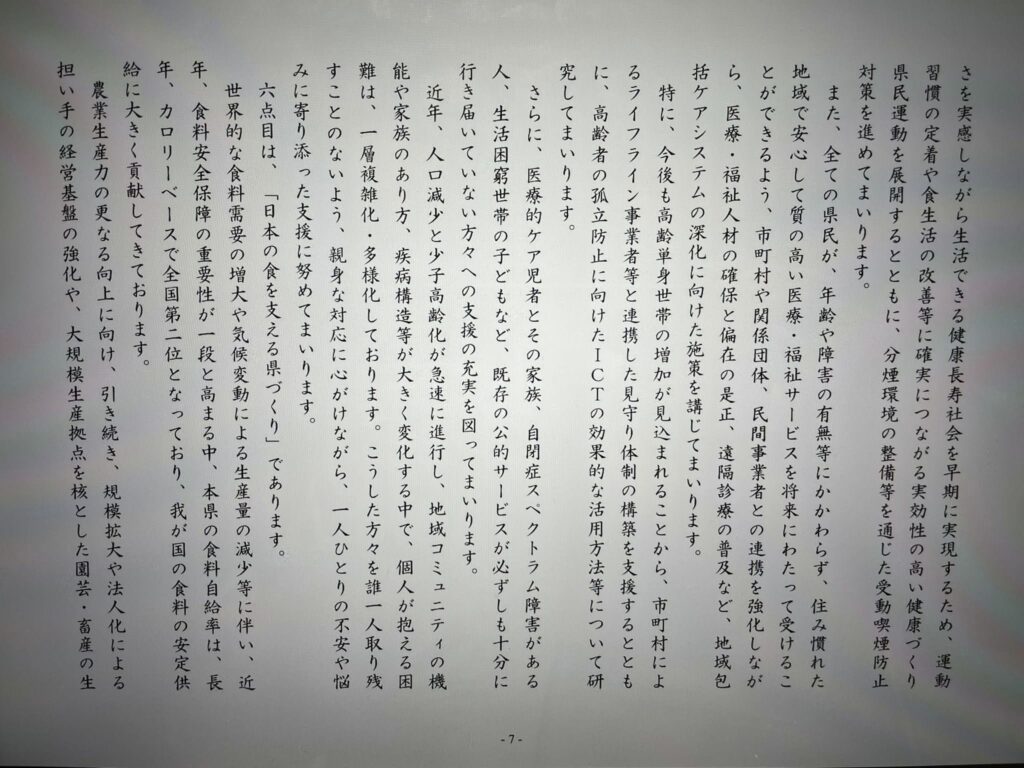 さを実感しながら生活できる健康長寿社会を早期に実現するため、運動
習慣の定着や食生活の改善等に確実につながる実効性の高い健康づくり
県民運動を展開するとともに、分煙環境の整備等を通じた受動喫煙防止
対策を進めてまいります。
また、全ての県民が、年齢や障害の有無等にかかわらず、住み慣れた
地域で安心して質の高い医療・福祉サービスを将来にわたって受けるこ
とができるよう、市町村や関係団体、民間事業者との連携を強化しなが
ら、医療・福祉人材の確保と偏在の是正、遠隔診療の普及など、地域包
括ケアシステムの深化に向けた施策を講じてまいります。
特に、今後も高齢単身世帯の増加が見込まれることから、市町村によ
るライフライン事業者等と連携した見守り体制の構築を支援するととも
に、高齢者の孤立防止に向けたICTの効果的な活用方法等について研
究してまいります。
さらに、医療的ケア児者とその家族、自閉症スペクトラム障害がある
人、生活困窮世帯の子どもなど、既存の公的サービスが必ずしも十分に
行き届いていない方々への支援の充実を図ってまいります。
近年、人口減少と少子高齢化が急速に進行し、地域コミュニティの機
能や家族のあり方、疾病構造等が大きく変化する中で、個人が抱える困
難は、一層複雑化・多様化しております。こうした方々を誰一人取り残
すことのないよう、親身な対応に心がけながら、一人ひとりの不安や悩
みに寄り添った支援に努めてまいります。
六点目は、「日本の食を支える県づくり」であります。
世界的な食料需要の増大や気候変動による生産量の減少等に伴い、近
年、食料安全保障の重要性が一段と高まる中、本県の食料自給率は、長
年、カロリーベースで全国第二位となっており、我が国の食料の安定供
給に大きく貢献してきております。
農業生産力の更なる向上に向け、引き続き、規模拡大や法人化による
担い手の経営基盤の強化や、大規模生産拠点を核とした園芸・畜産の生
- 7 -